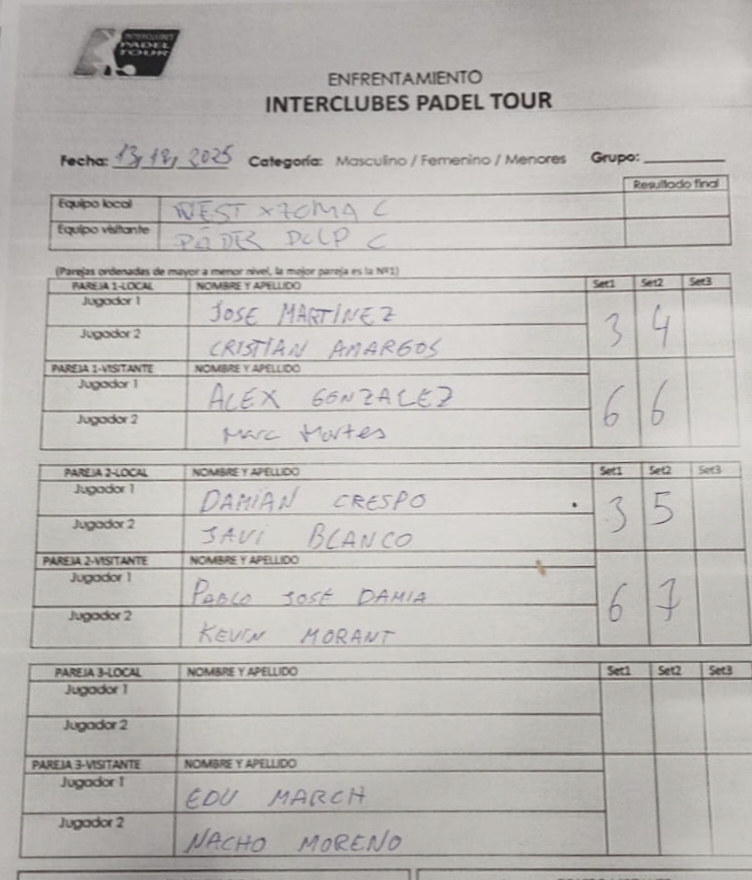 INTERCLUBES
PADEL
TOUR
ENFRENTAMIENTO
INTERCLUBES PADEL TOUR
Fecha: 13, 12, 2025 Categoría: Masculino / Femenino / Menores Grupo:
Resultado final
Equipo local WEST XTOMA C
Equipo visitante C
(Parejas ordenadas de mayor a menor nivel, la mejor pareja es la Nº1)
PAREJA 1-LOCAL NOMBRE Y APELLIDO Set1 Set2 Set3
Jugador 1 JOSE MARTINEZ
3 4
Jugador 2 CRISTIAN AMARGOS
PAREJA 1-VISITANTE NOMBRE Y APELLIDO
Jugador 1 ALEX GONZALEZ
6 6
Jugador 2 Marc
PAREJA 2-LOCAL NOMBRE Y APELLIDO Set1 Set2 Set3
Jugador 1 DAMIAN CRESPO
3 5
Jugador 2 JAVI BLANCO
PAREJA 2-VISITANTE NOMBRE Y APELLIDO
Jugador 1 PABLO JOSE DAMIA
6 7
Jugador 2 KEVIN MORANT
PAREJA 3-LOCAL NOMBRE Y APELLIDO Set1 Set2 Set3
Jugador 1
Jugador 2
PAREJA 3-VISITANTE NOMBRE Y APELLIDO
Jugador 1 EDU MARCH
Jugador 2 NACHO MORENO